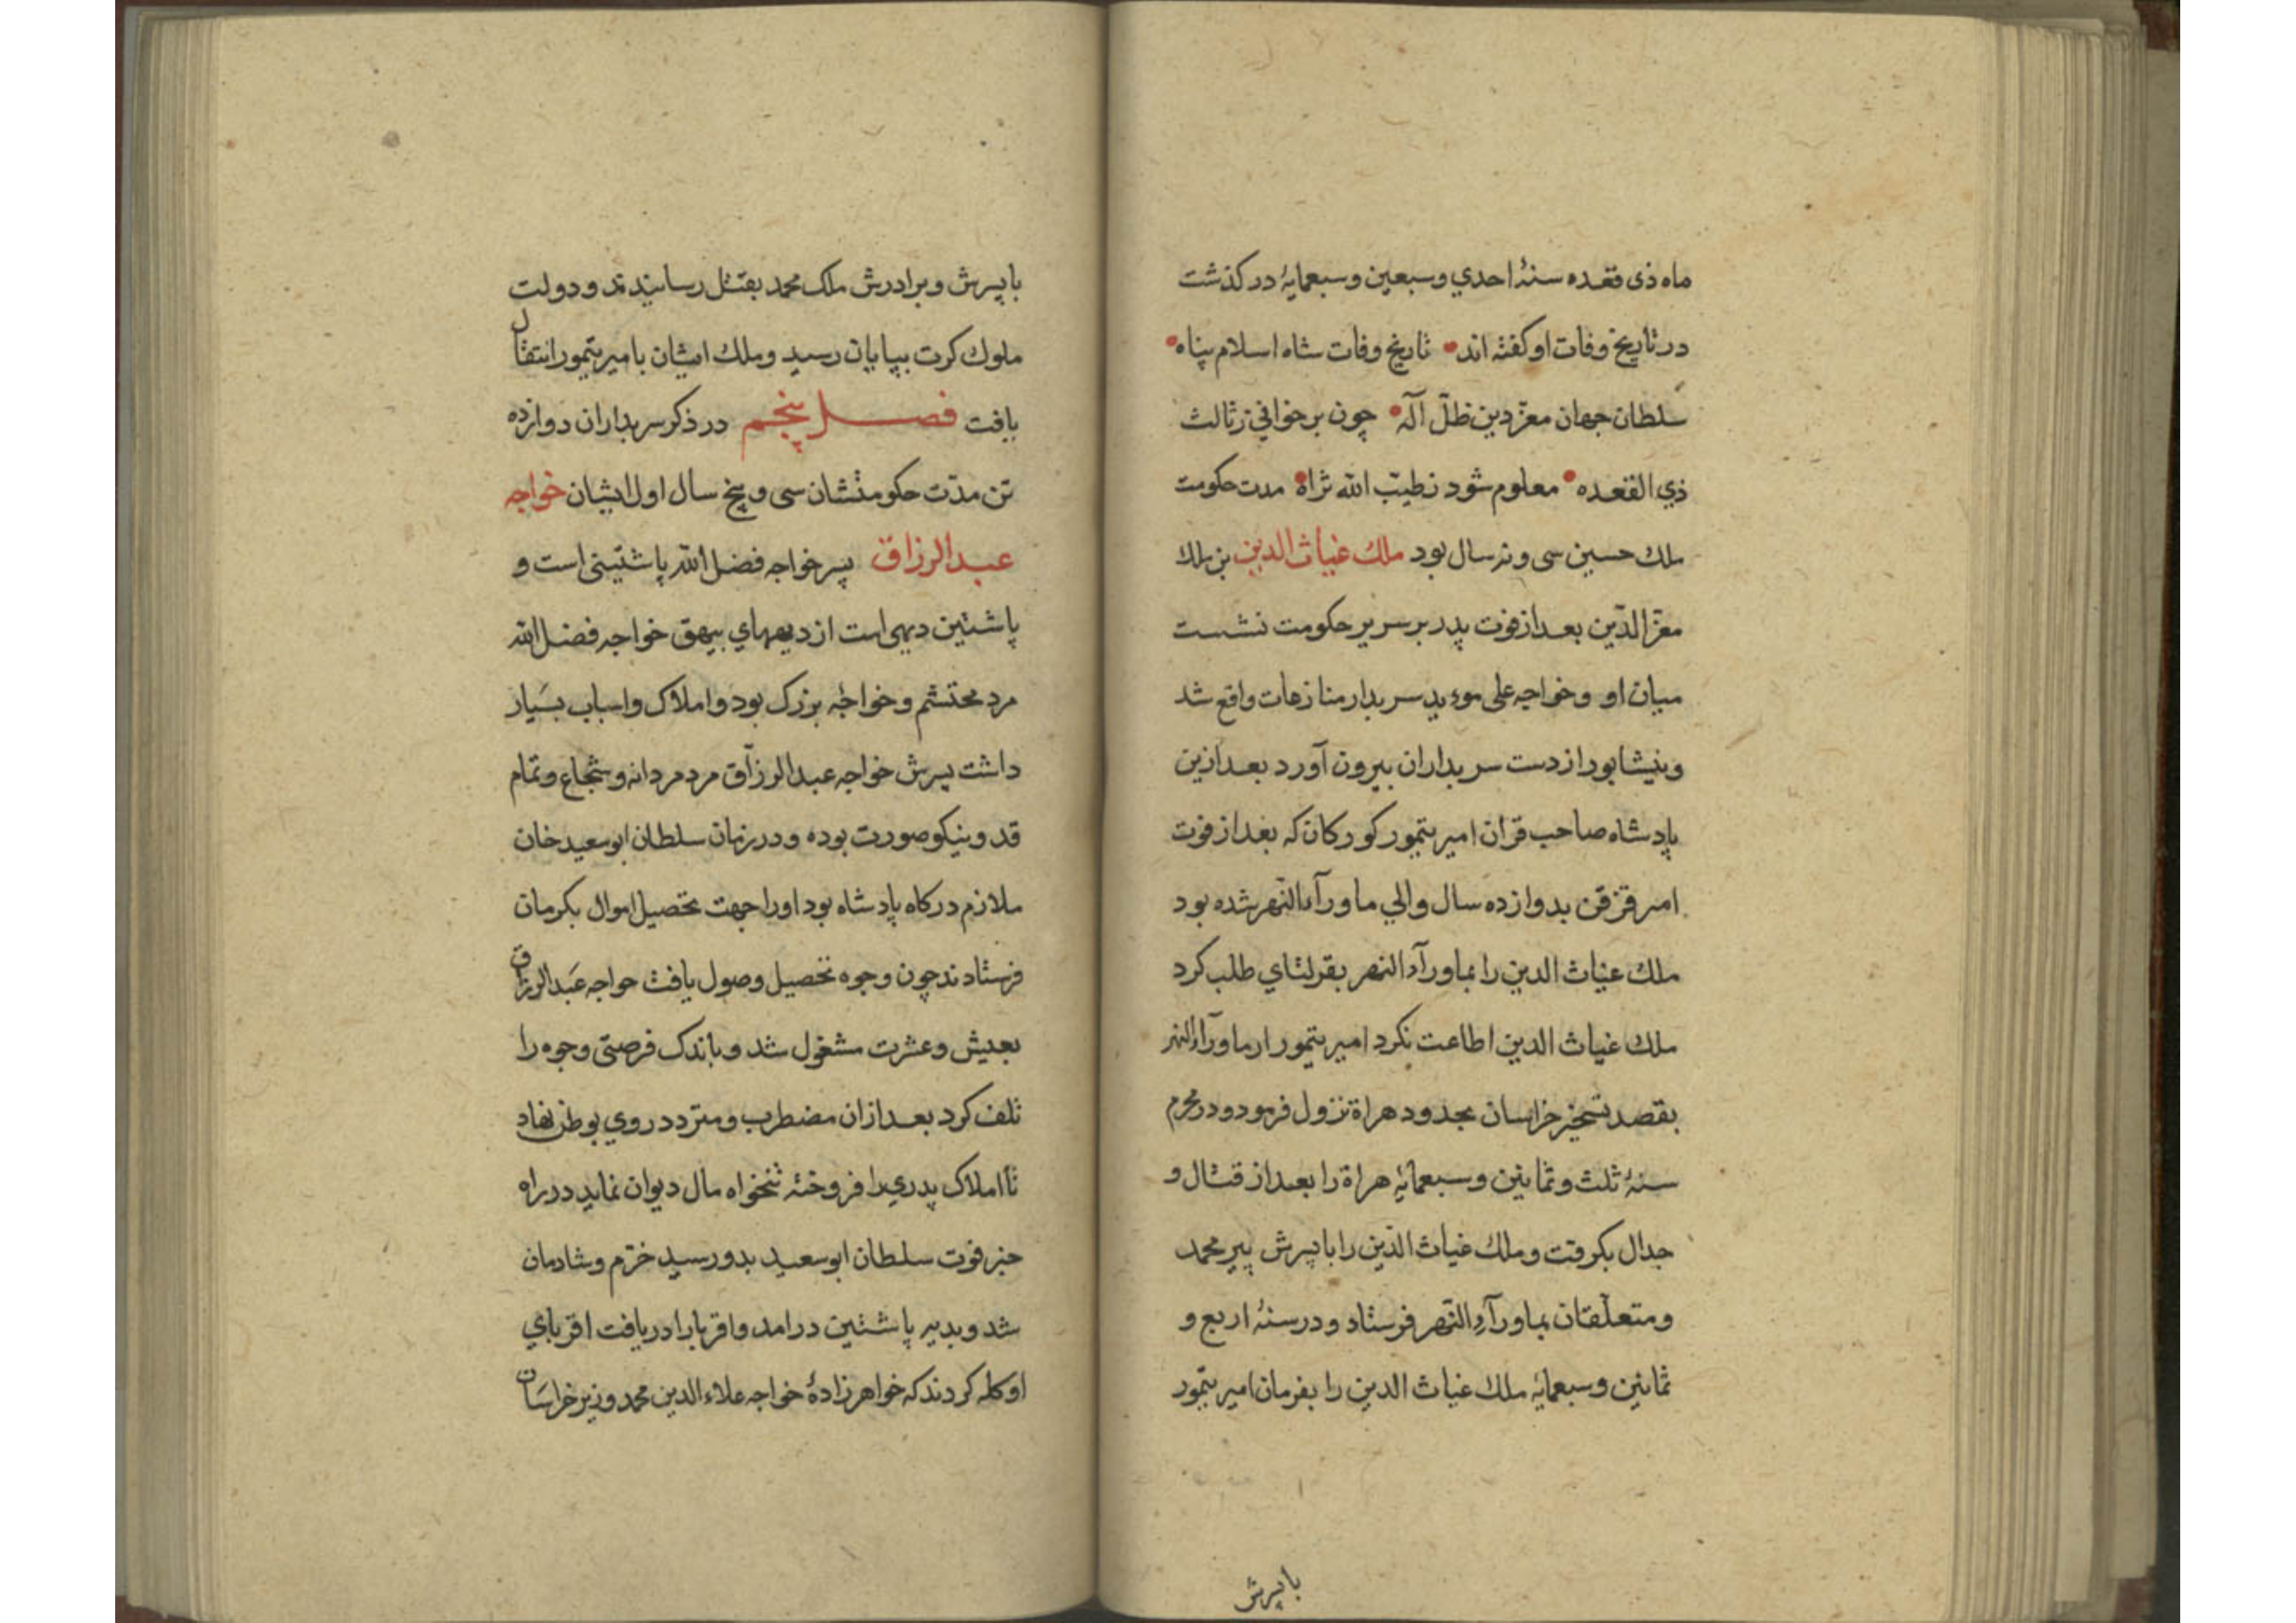 ماه ذی قعده سنۀ احدي وسبعین وسبعمایۀ درکذشت
در تاریخ وفات او کفته اند • تاریخ وفات شاه اسلام پناه •
سلطان جهان معزّ دین ظلّ آلٓه • چون برخوانی ز ثالث
ذي القعده • معلوم شود ز طیّب الله ثراه • مدت حکومت
ملك حسین سی و نه سال بود ملك غیاث الدین بن ملك
معزّ الدّین بعد از فوت پدر بر سریر حکومت نشست
میان او وخواجه علی موءید سربدار منازعات واقع شد
ونیشابور از دست سربداران بیرون آورد بعد ازین
پادشاه صاحب قران امیر تیمور کورکان که بعد از فوت
امیر قزقن بدوازده سال والي ماورآء النّهر شده بود
ملك غیاث الدین را بماورآء النهر بقرلتاي طلب کرد
ملك غیاث الدین اطاعت نکرد امیر تیمور از ماورآء النهر
بقصد تسخیر خراسان بحدود هراة نزول فرمود و در محرم
سنۀ ثلث وثمانین وسبعمایۀ هراة را بعد از قتال و
جدال بکرفت وملك غیاث الدّین را با پسرش پیر محمد
ومتعلّقان بماورآء النّهر فرستاد و در سنۀ اربع و
ثمانین وسبعمایۀ ملك غیاث الدین را بفرمان امیر تیمور
با پسرش
با پسرش وبرادرش ملک محمد بقتل رسانیدند ودولت
ملوك کرت بپایان رسید وملك ایشان با میر تیمور انتقال
یافت فصل پنجم در ذکر سربداران دوازده
تن مدّت حکومتشان سی و پنج سال اول ایشان خواجه
عبد الرزاق پسر خواجه فضل الله پاشتینی است و
پاشتین دیهی است از دیههاي بیهق خواجه فضل الله
مرد محتشم وخواجۀ بزرک بود واملاک واسباب بسیار
داشت پسرش خواجه عبد الرزّاق مرد مردانه وشجاع وتمام
قد ونیکو صورت بوده ودر زمان سلطان ابو سعید خان
ملازم درکاه پادشاه بود اورا جهت تحصیل اموال بکرمان
فرستادند چون وجوه تحصیل وصول یافت خواجه عبد الرزاق
بعیش وعشرت مشغول شد وباندک فرصتی وجوه را
تلف کرد بعد ازان مضطرب ومتردد روي بوطن نهاد
تا املاک پدري را فروخته تنخواه مال دیوان نماید در راه
خبر فوت سلطان ابو سعید بدو رسید خرّم وشادمان
شد وبدیه پاشتین درامد واقربا را دریافت اقرباي
او کله کردند که خواهرزادۀ خواجه علاء الدین محمد وزیر خراسان